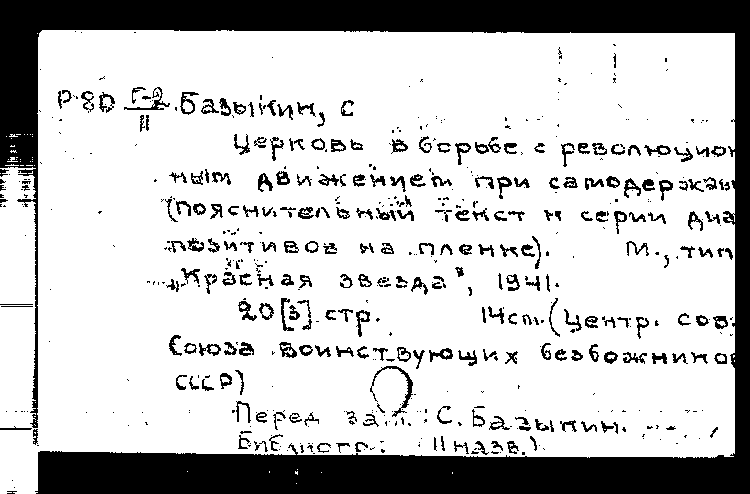 Р80 Г-2 Базыкин, С
II
Церковь в борьбе с революцион
ным движением при самодержав
(пояснительный текст к серии диа
позитивов на пленке). М., тип.
„Красная звезда", 1941.
20[3] стр. 14см. (Центр. сов.
Союза воинствующих безбожников
СССР)
Перед загл.: С. Базыкин.
Библиогр.: (11 назв.)